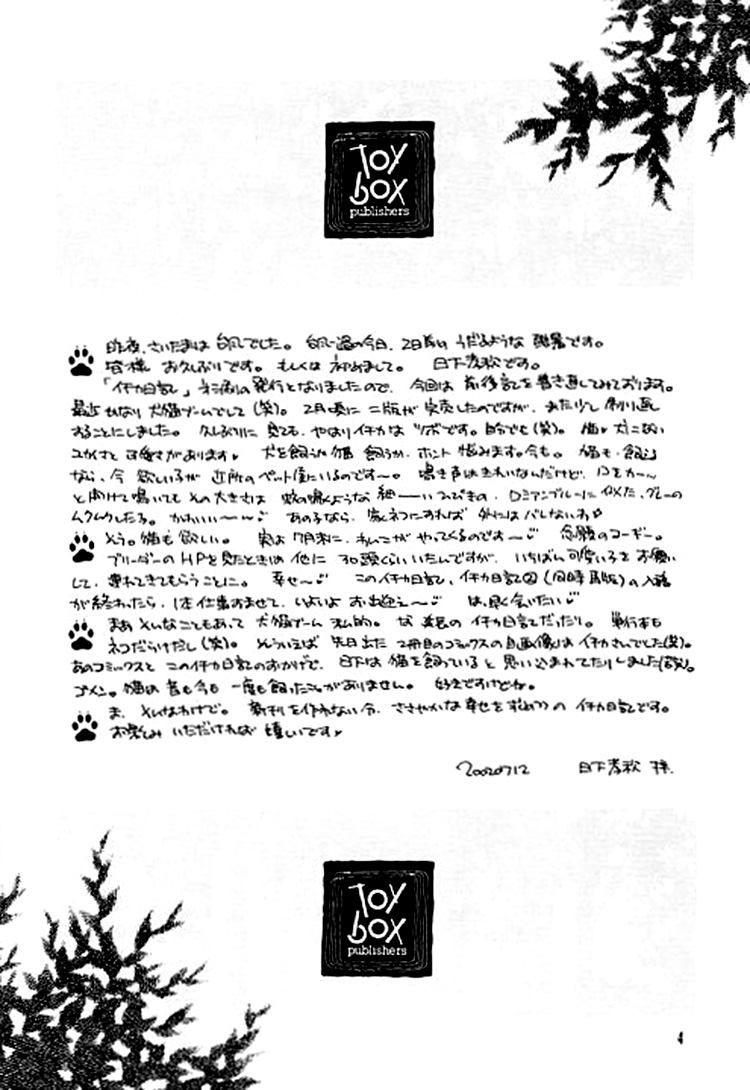 TOY
box
publishers
昨夜、さいたまは台風でした。台風一過の今日、2日続けうだるような酷暑です。
皆様 お久しぶりです。もしくは初めまして。日下孝秋です。
「イチカ日記」 の発行となりましたので、今回は 前後記を書き直してみております。
最近 かなり 犬猫ブームでして(笑)。2月頃に 二版が完売したのですが、またけし 刷り直し
することにしました。久しぶりに見ても、やはりイチカは ツボです。 でも(笑)。猫♥犬に
ユカさと可愛さがあります♥ 犬を飼うか猫 飼うか、ホント 悩みます。今も。猫も、飼う
なら、今 欲しい子が 近所のペット屋にいるのです〜。鳴き声はきれいなんだけど、口をカーッ
と開けて鳴いても その大きさは 蚊の鳴くような細──い ひびきの、ロシアンブルーに似た、グレーの
ムクムクした子。かわいい〜〜♪ あの子なら、家ネコにすれば 外には バレないわ
そう。猫も欲しい。実は 7月末に、わんこが やってくるのです〜♪ 念願のコーギー。
ブリーダーの HPを見たときは 他に 30頭くらいいたんですが、いちばん可愛い子をお願い
して、連れてきてもらうことに。幸せ〜♪ このイチカ日記、イチカ日記②(同時再版)の入稿
が終わったら、1本仕事すませて、いよいよ お迎え〜♪ は、早く会いたい♪
まあ そんなこともあって 犬猫ブーム 私的。な 英君の イチカ日記だったり。単行本も
ネコだらけだし(笑)。そういえば 先日出た 2冊目のコミックスの自画像は イチカさんでした(笑)。
あのコミックスと このイチカ日記のおかげで、日下は 猫を飼っていると 思い込まれてたりしました(笑)。
ゴメン。猫は 昔も今も 一度も飼ったことがありません。好きですけどね。
ま、そんなわけで。新刊を作れない今、ささやかな幸せを の イチカ日記です。
お楽しみ いただければ 嬉しいです♥
20020712 日下孝秋 拝
TOY
box
publishers
4